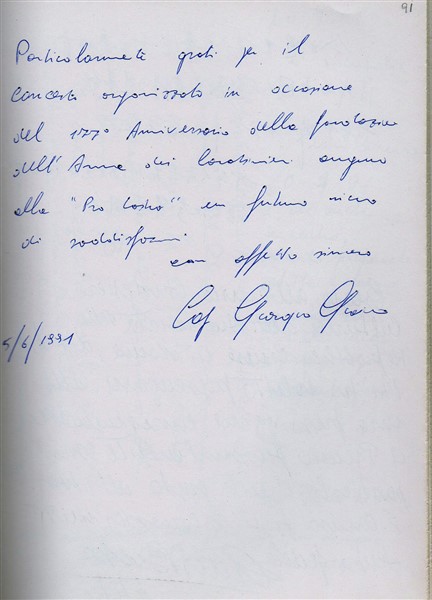 91
Particolarmente grati per il
concerto organizzato in occasione
del 177° Anniversario della fondazione
dell'Arma dei Carabinieri auguro
alla "Pro Loco" un futuro ricco
di soddisfazioni
con affetto sincero
Giorgio
5/6/1991